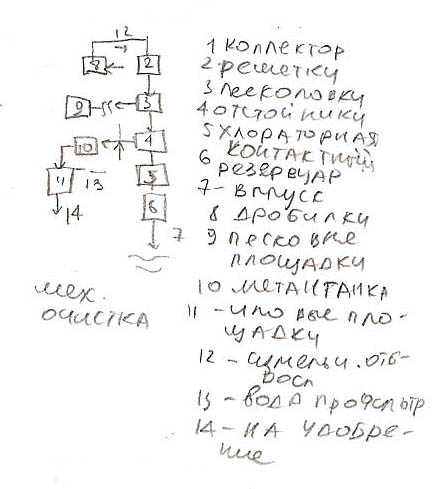 12
8 2
9 3
10 4
11 13 5
14 6
7
мех.
очистка
1 коллектор
2 решетки
3 песколовки
4 отстойники
5 хлораторная
6 контактный
резервуар
7- выпуск
8 дробилки
9 песковые
площадки
10 метантанка
11 - иловые пло-
щадки
12 -
13 - вода
14 - на удобре-
ние